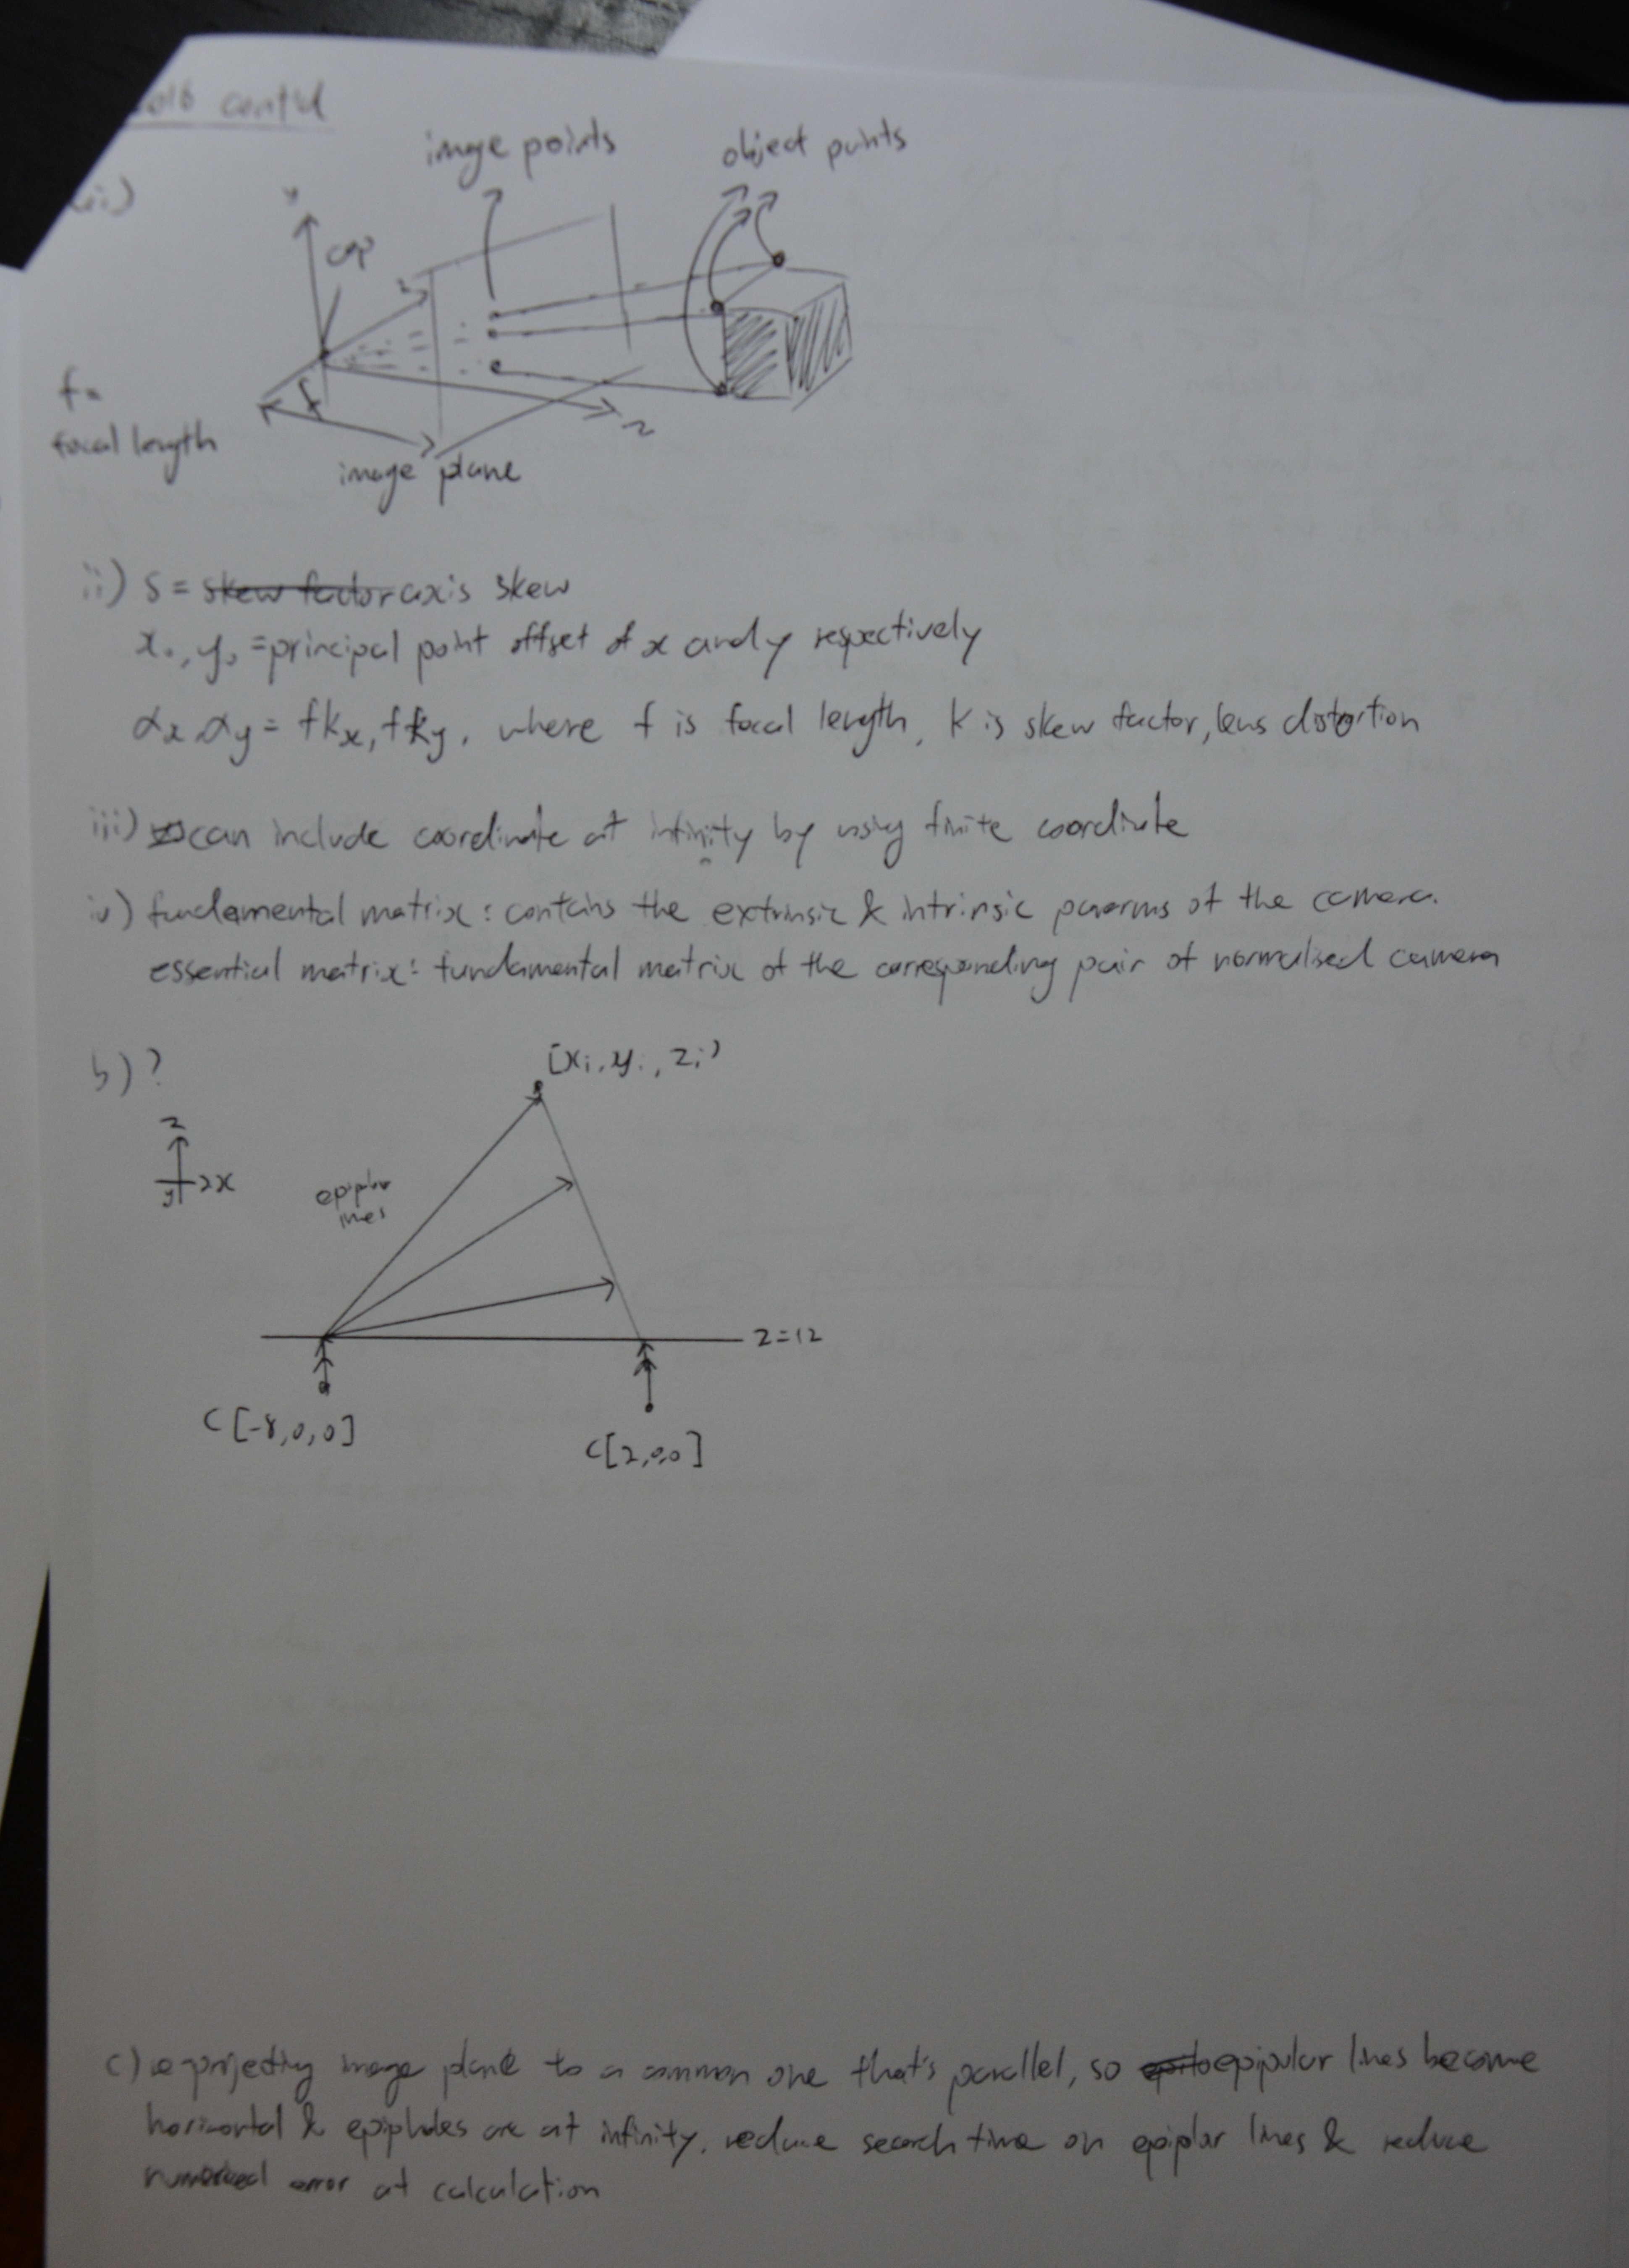 016 cont'd
image points
object points
ii)
y
cop
x
f
f=
focal length
z
image plane
ii) s = skew factor axis skew
x₀, y₀ = principal point offset of x and y respectively
αx αy = fkx, fky, where f is focal length, k is skew factor, lens distortion
iii) can include coordinate at infinity by using finite coordinate
iv) fundamental matrix: contains the extrinsic & intrinsic params of the camera.
essential matrix: fundamental matrix of the corresponding pair of normalised camera
b) ?
[xi, yi, zi]
z
y x
epiplar
lines
z=12
C[-8,0,0]
C[2,0,0]
c) re-projecting image plane to a common one that's parallel, so epipolar lines become
horizontal & epipholes are at infinity, reduce search time on epiplar lines & reduce
numerical error at calculation